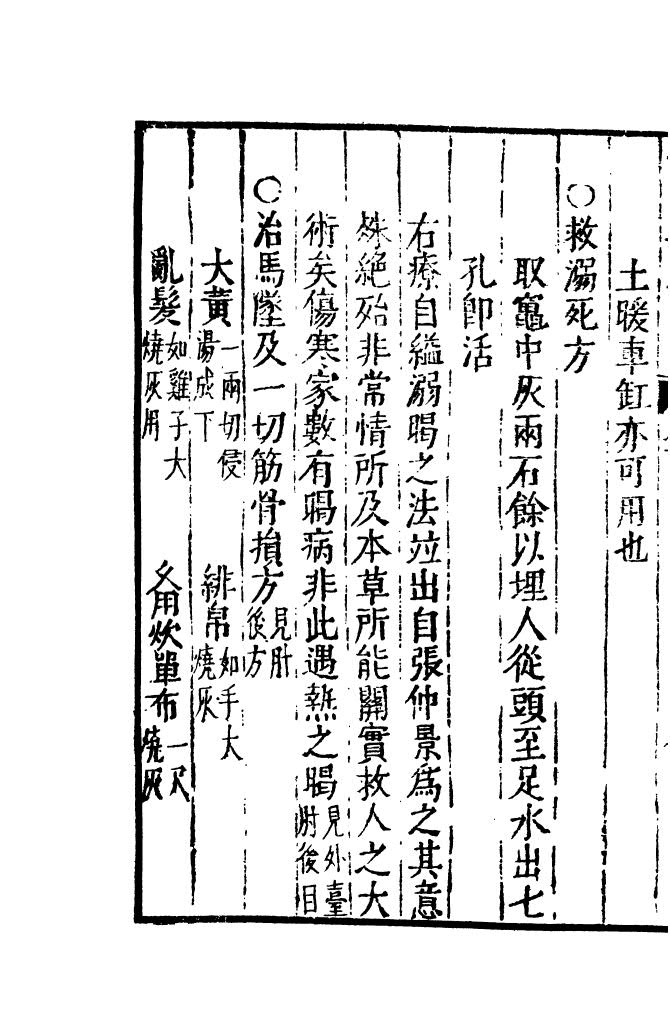 土暖車缸亦可用也
○救溺死方
取竈中灰兩石餘以埋人從頭至足水出七
孔即活
右療自縊溺暍之法竝出自張仲景爲之其意
殊絶殆非常情所及本草所能關實救人之大
術矣傷寒家數有暍病非此遇熱之暍見外臺肘後目
○治馬墜及一切筋骨損方見肘後方
大黄一兩切侵湯成下 緋帛如手大燒灰
亂髮如雞子大燒灰用 久用炊單布一尺燒灰